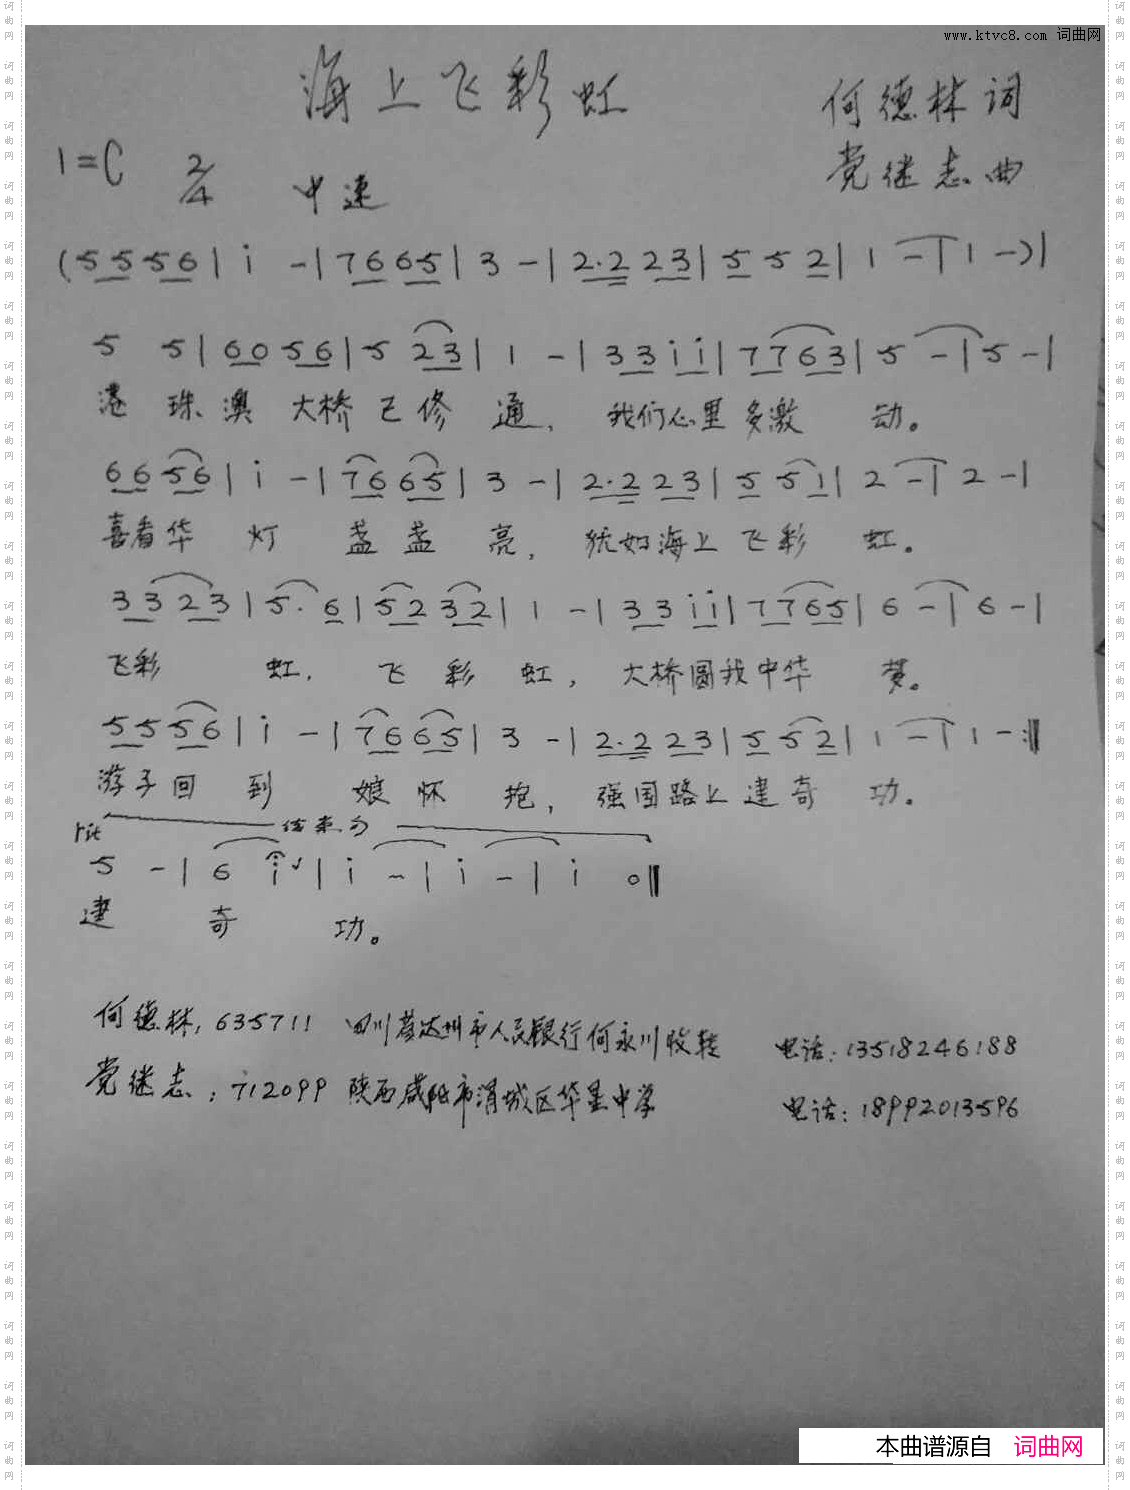 www.ktvc8.com 词曲网
海上飞彩虹
何德林词
1=C 2/4 中速
党继志曲
(5 5 5 6 | i - | 7 6 6 5 | 3 - | 2·2 2 3 | 5 5 2 | 1 - | 1 -) |
5 5 | 6 0 5 6 | 5 2 3 | 1 - | 3 3 i i | 7 7 6 3 | 5 - | 5 - |
港珠澳大桥已修通，我们心里多激动。
6 6 5 6 | i - | 7 6 6 5 | 3 - | 2·2 2 3 | 5 5 1 | 2 - | 2 - |
喜看华灯盏盏亮，犹如海上飞彩虹。
3 3 2 3 | 5· 6 | 5 2 3 2 | 1 - | 3 3 i i | 7 7 6 5 | 6 - | 6 - |
飞彩虹，飞彩虹，大桥圆我中华梦。
5 5 5 6 | i - | 7 6 6 5 | 3 - | 2·2 2 3 | 5 5 2 | 1 - | 1 - :‖
游子回到娘怀抱，强国路上建奇功。
rit 结束句
5 - | 6 i | i - | i - | i 0 ‖
建奇功。
何德林，635711 四川省达州市人民银行何永川收转 电话：13518246188
党继志：712099 陕西咸阳市渭城区华星中学 电话：18992013596
本曲谱源自 词曲网
词曲网